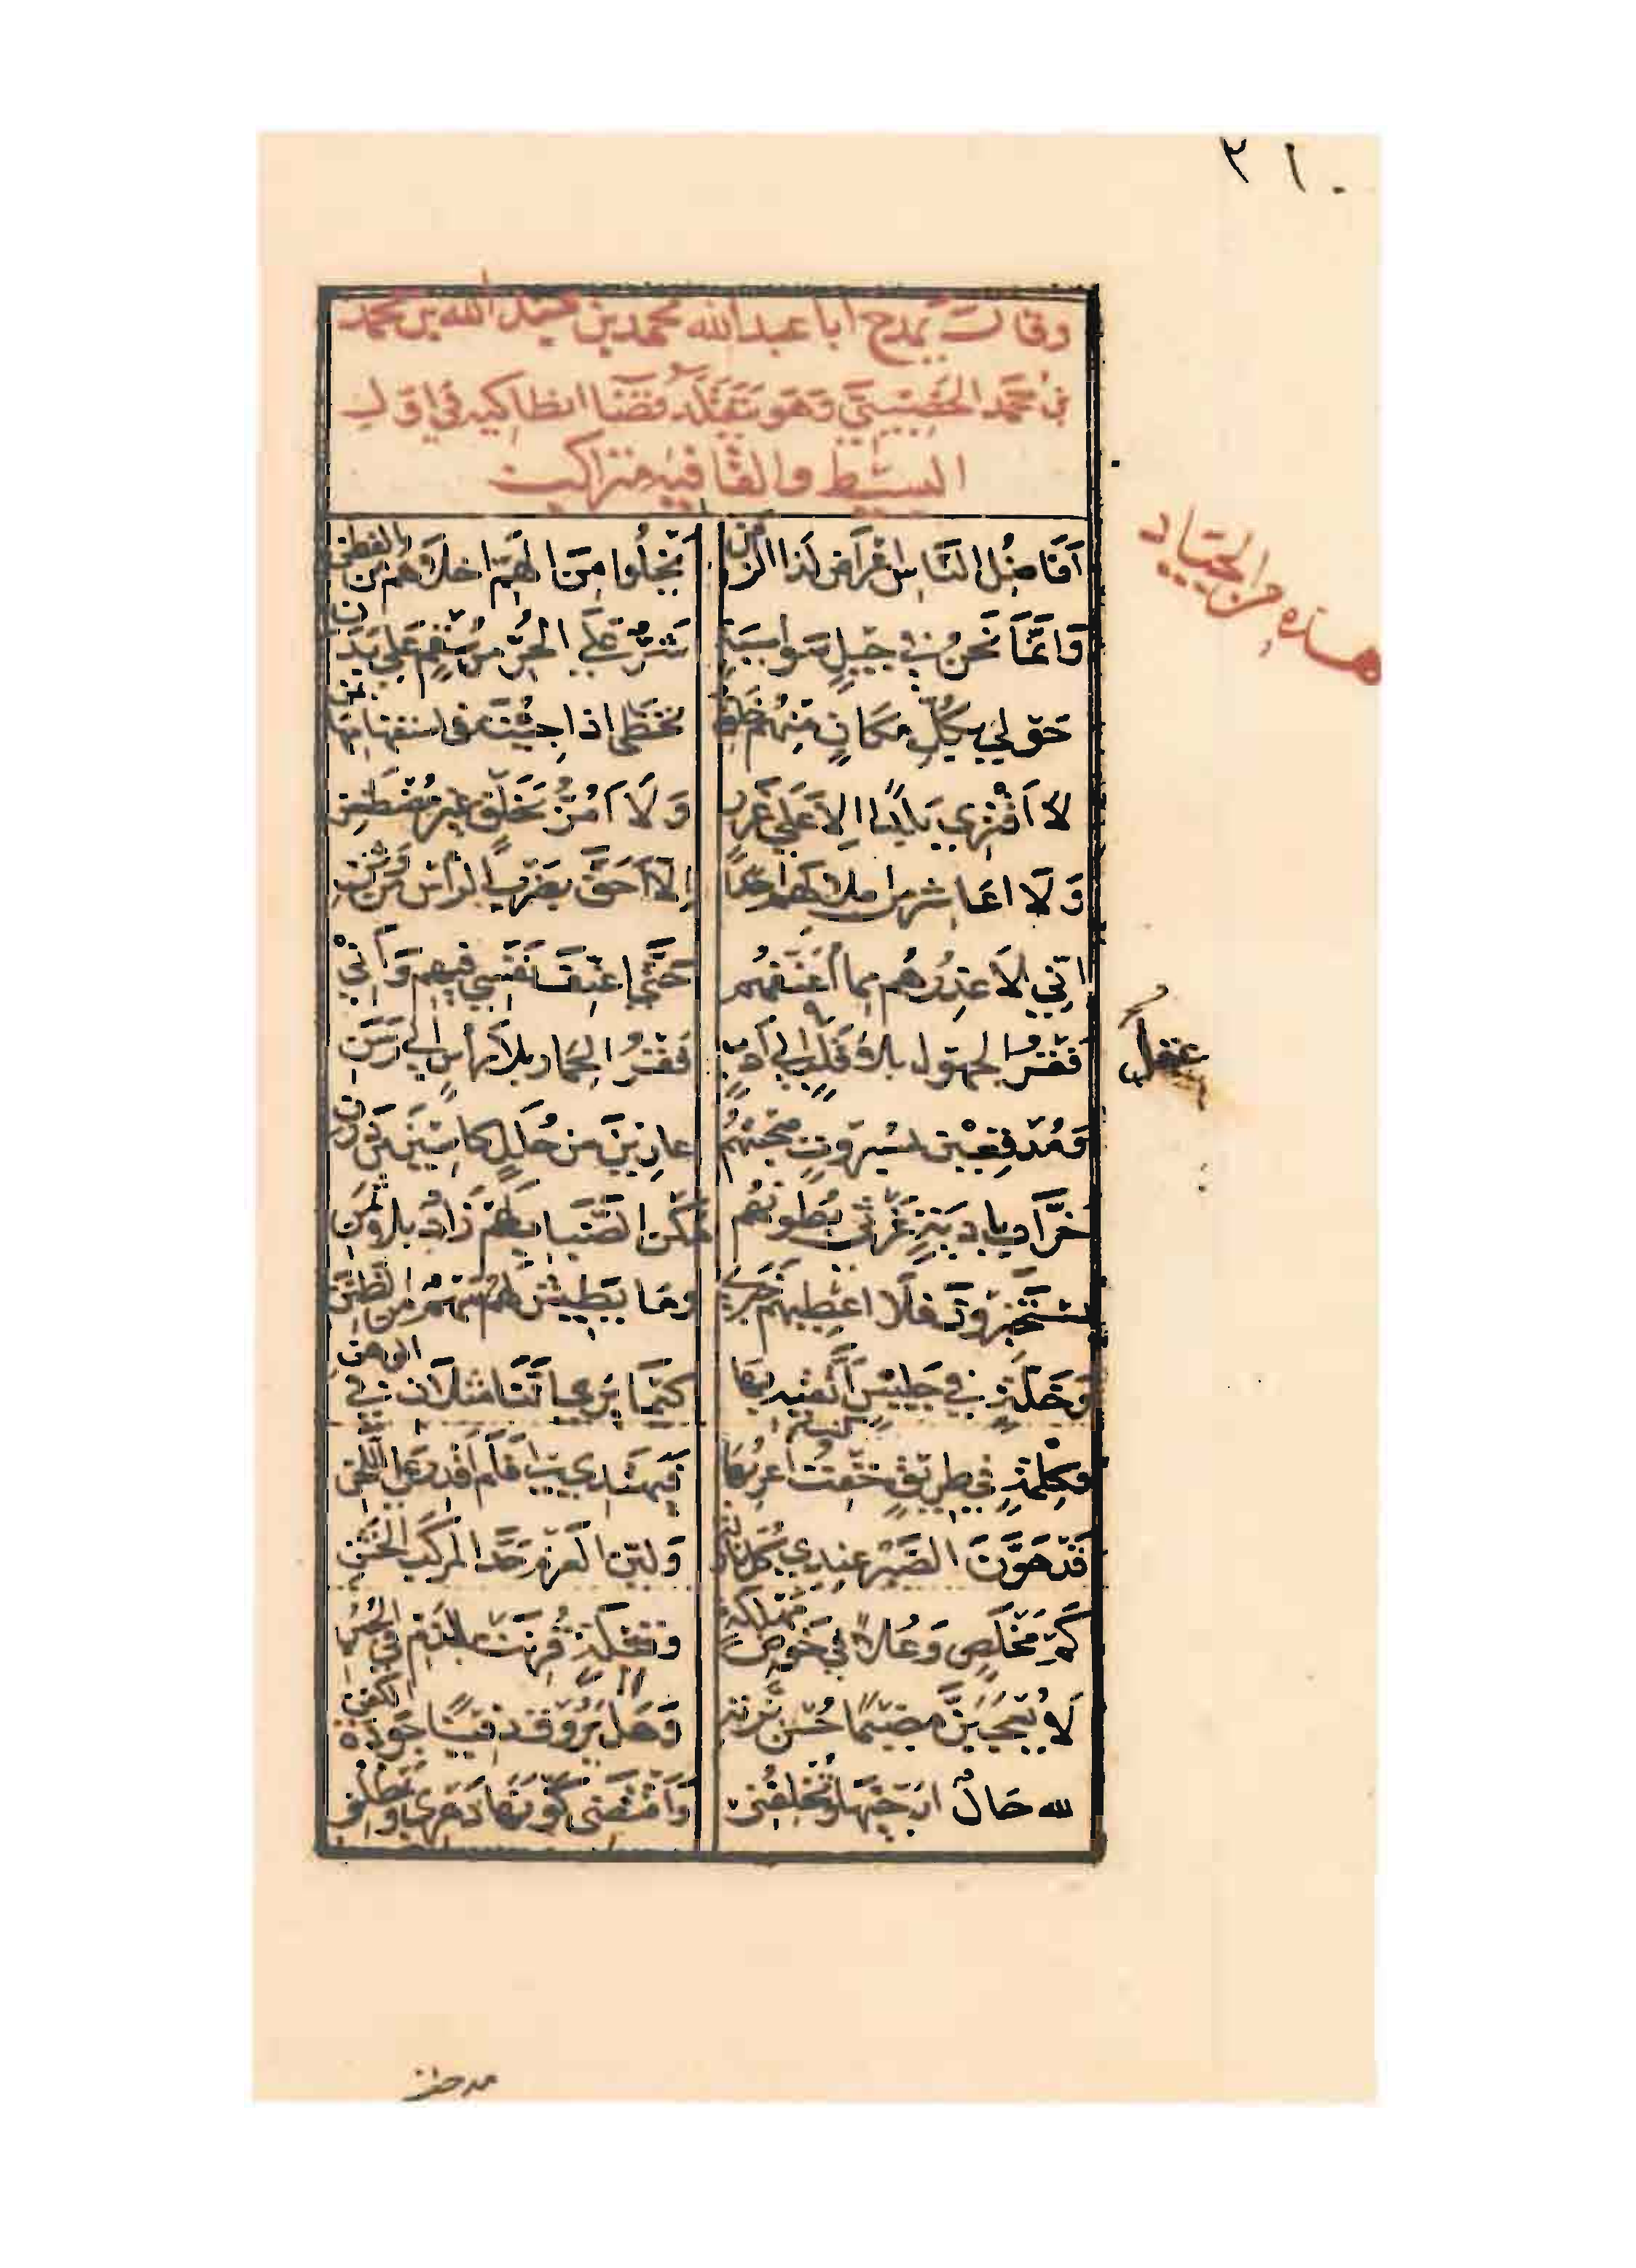 ٣١٠
وقال يمدح ابا عبد الله محمد بن عبيد الله بن محمد
بن محمد الخصيبي وهو يتقلد قضا انطاكيه في اول
البسيط والقافيه متراكب
هذه من الجياد
اَفَاضِلُ النَّاسِ اغْرَاض لَذا الزمن يخلُوا مِنَ الهَمِّ اخلاهُم من الفطن
وَانَّمَا نَحنُ في جِيلٍ سَواسِيَةٍ شَرٌّ عَلَى الحُرِّ مِن سُقْمٍ عَلى بَدَن
حَولي بِكُلِّ مَكانٍ مِنهُم خِلَقٌ تخطى اذا جِئتَ في استفهامها بمن
لا اَقْتري بَلداً الا عَلى غَرَرٍ وَلا اَمُرُّ بخَلْق غير مُضْطَغِن
وَلا اعَاشر من املاكهم احداً اِلا اَحَقّ بضَربِ الراس من وثن
انّي لاَعذِرُهُم مما اعَنّفهُم حَتَّى اعنِّفَ نَفْسي فيهم وَاَني
فَقْرُ الجهول بلا قَلبٍ الى اَدَبٍ فَقْرُ الحمار بلا راس الى رَسَن
عقل
وَمُدْقعِيْن بسُبروتٍ صحبتهُم عارينَ من حُلَلٍ كاسِينَ من دَرَن
خرَّاب باديَةٍ غَرْثى بُطونُهُم مَكن الضّبَاب لهم زَادٌ بلا ثَمَن
يستَخْبرُونَ فلا اعطيهم خَبَري وما يَطِيش لهم سهْم من الظنن
وَخلّةٍ في جَليسٍ اَتّقيه بها كيمَا يرى اَنّنا مثلان في الوهن
وكِلْمَةٍ في طريقٍ خفْتُ اعربُها فيهتدي بي فلم اقدر على اللحن
قَد هَوَّنَ الصَّبْرُ عندي كُل نازلة وَلين العزم حَدَّ المركب الخشن
كم مَخْلَصٍ وَعُلاً في خَوض مهلكه وقتلةٍ قرِنَت بالذم في الجبن
لا يُعْجِبَنَّ مضيماً حُسْن بزته وَهَل يَرُوق دفيناً جَودة الكفن
لله حَالٌ ارَجِيها وتخلفُني وَاَقتضي كَونها دَهري ويمطلني